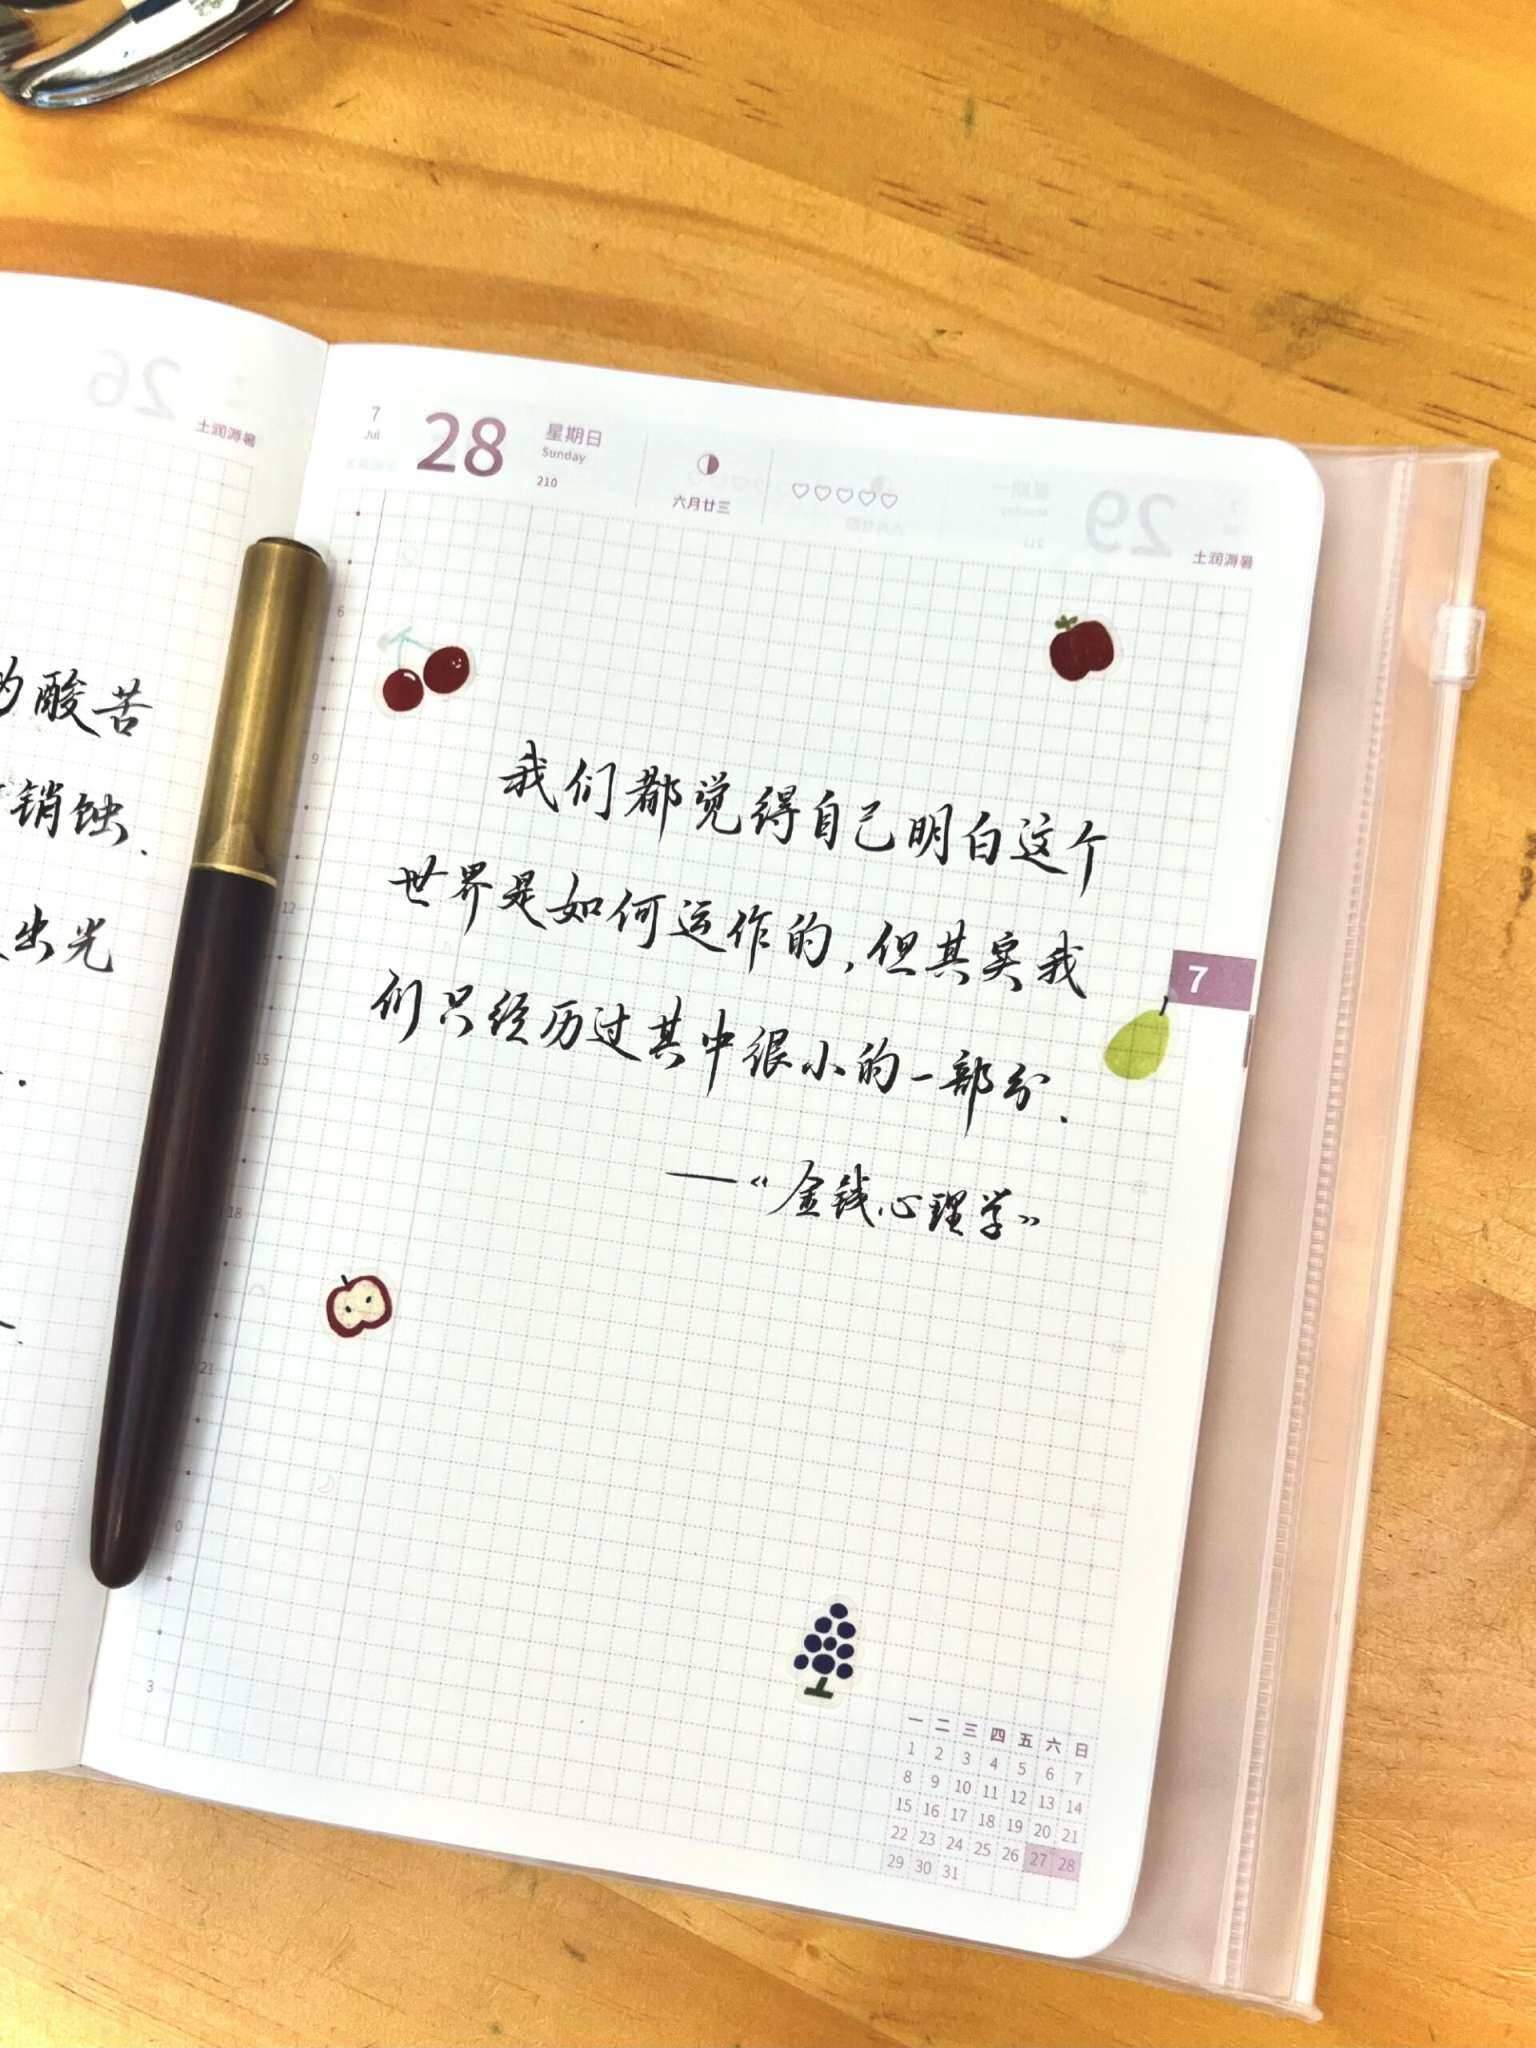 26
土润溽暑
的酸苦
销蚀.
出光
7
Jul
28
星期日
Sunday
210
六月廿三
29
土润溽暑
6
9
12
15
18
21
0
3
我们都觉得自己明白这个
世界是如何运作的,但其实我
们只经历过其中很小的一部分.
——《金钱心理学》
7
一 二 三 四 五 六 日
1 2 3 4 5 6 7
8 9 10 11 12 13 14
15 16 17 18 19 20 21
22 23 24 25 26 27 28
29 30 31